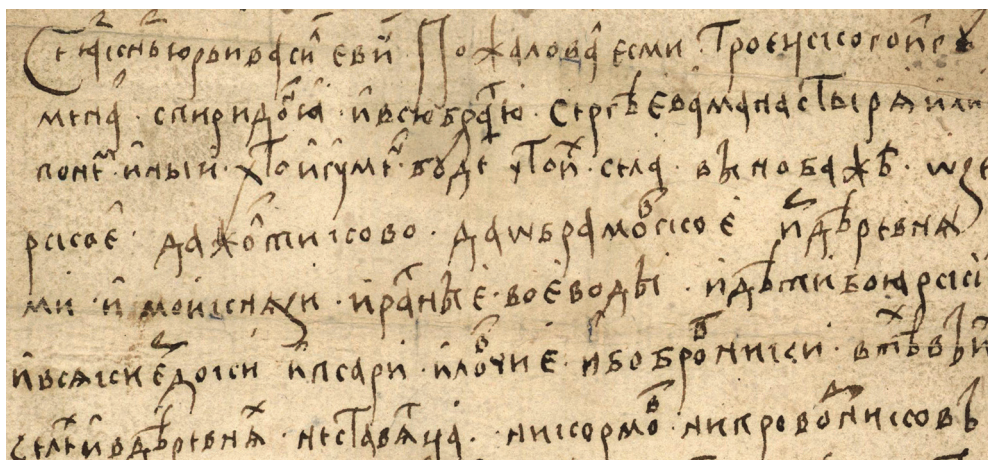 Се ꙗз кнѧз юрьи васил евич Пожаловал есми Троецкого игꙋ
мена · спиридонїа · и всю братїю · Сергѣева манастырѧ или
по нем · иныи · хто игꙋмен · бꙋде ꙋ тои · села · въ нобажѣ · ѡзе
рское · да жолтиково · да ѡбрамовское и деревнѧ
ми · и мои кнѧзи · и ратные · воеводы · и дѣти боꙗрски
и всѧкие ѣздоки и псари · и ловчие · и бобровники · в тѣх въ и
селех и в деревнѧх · не ставѧтца · ни кормов · ни проводников ъ